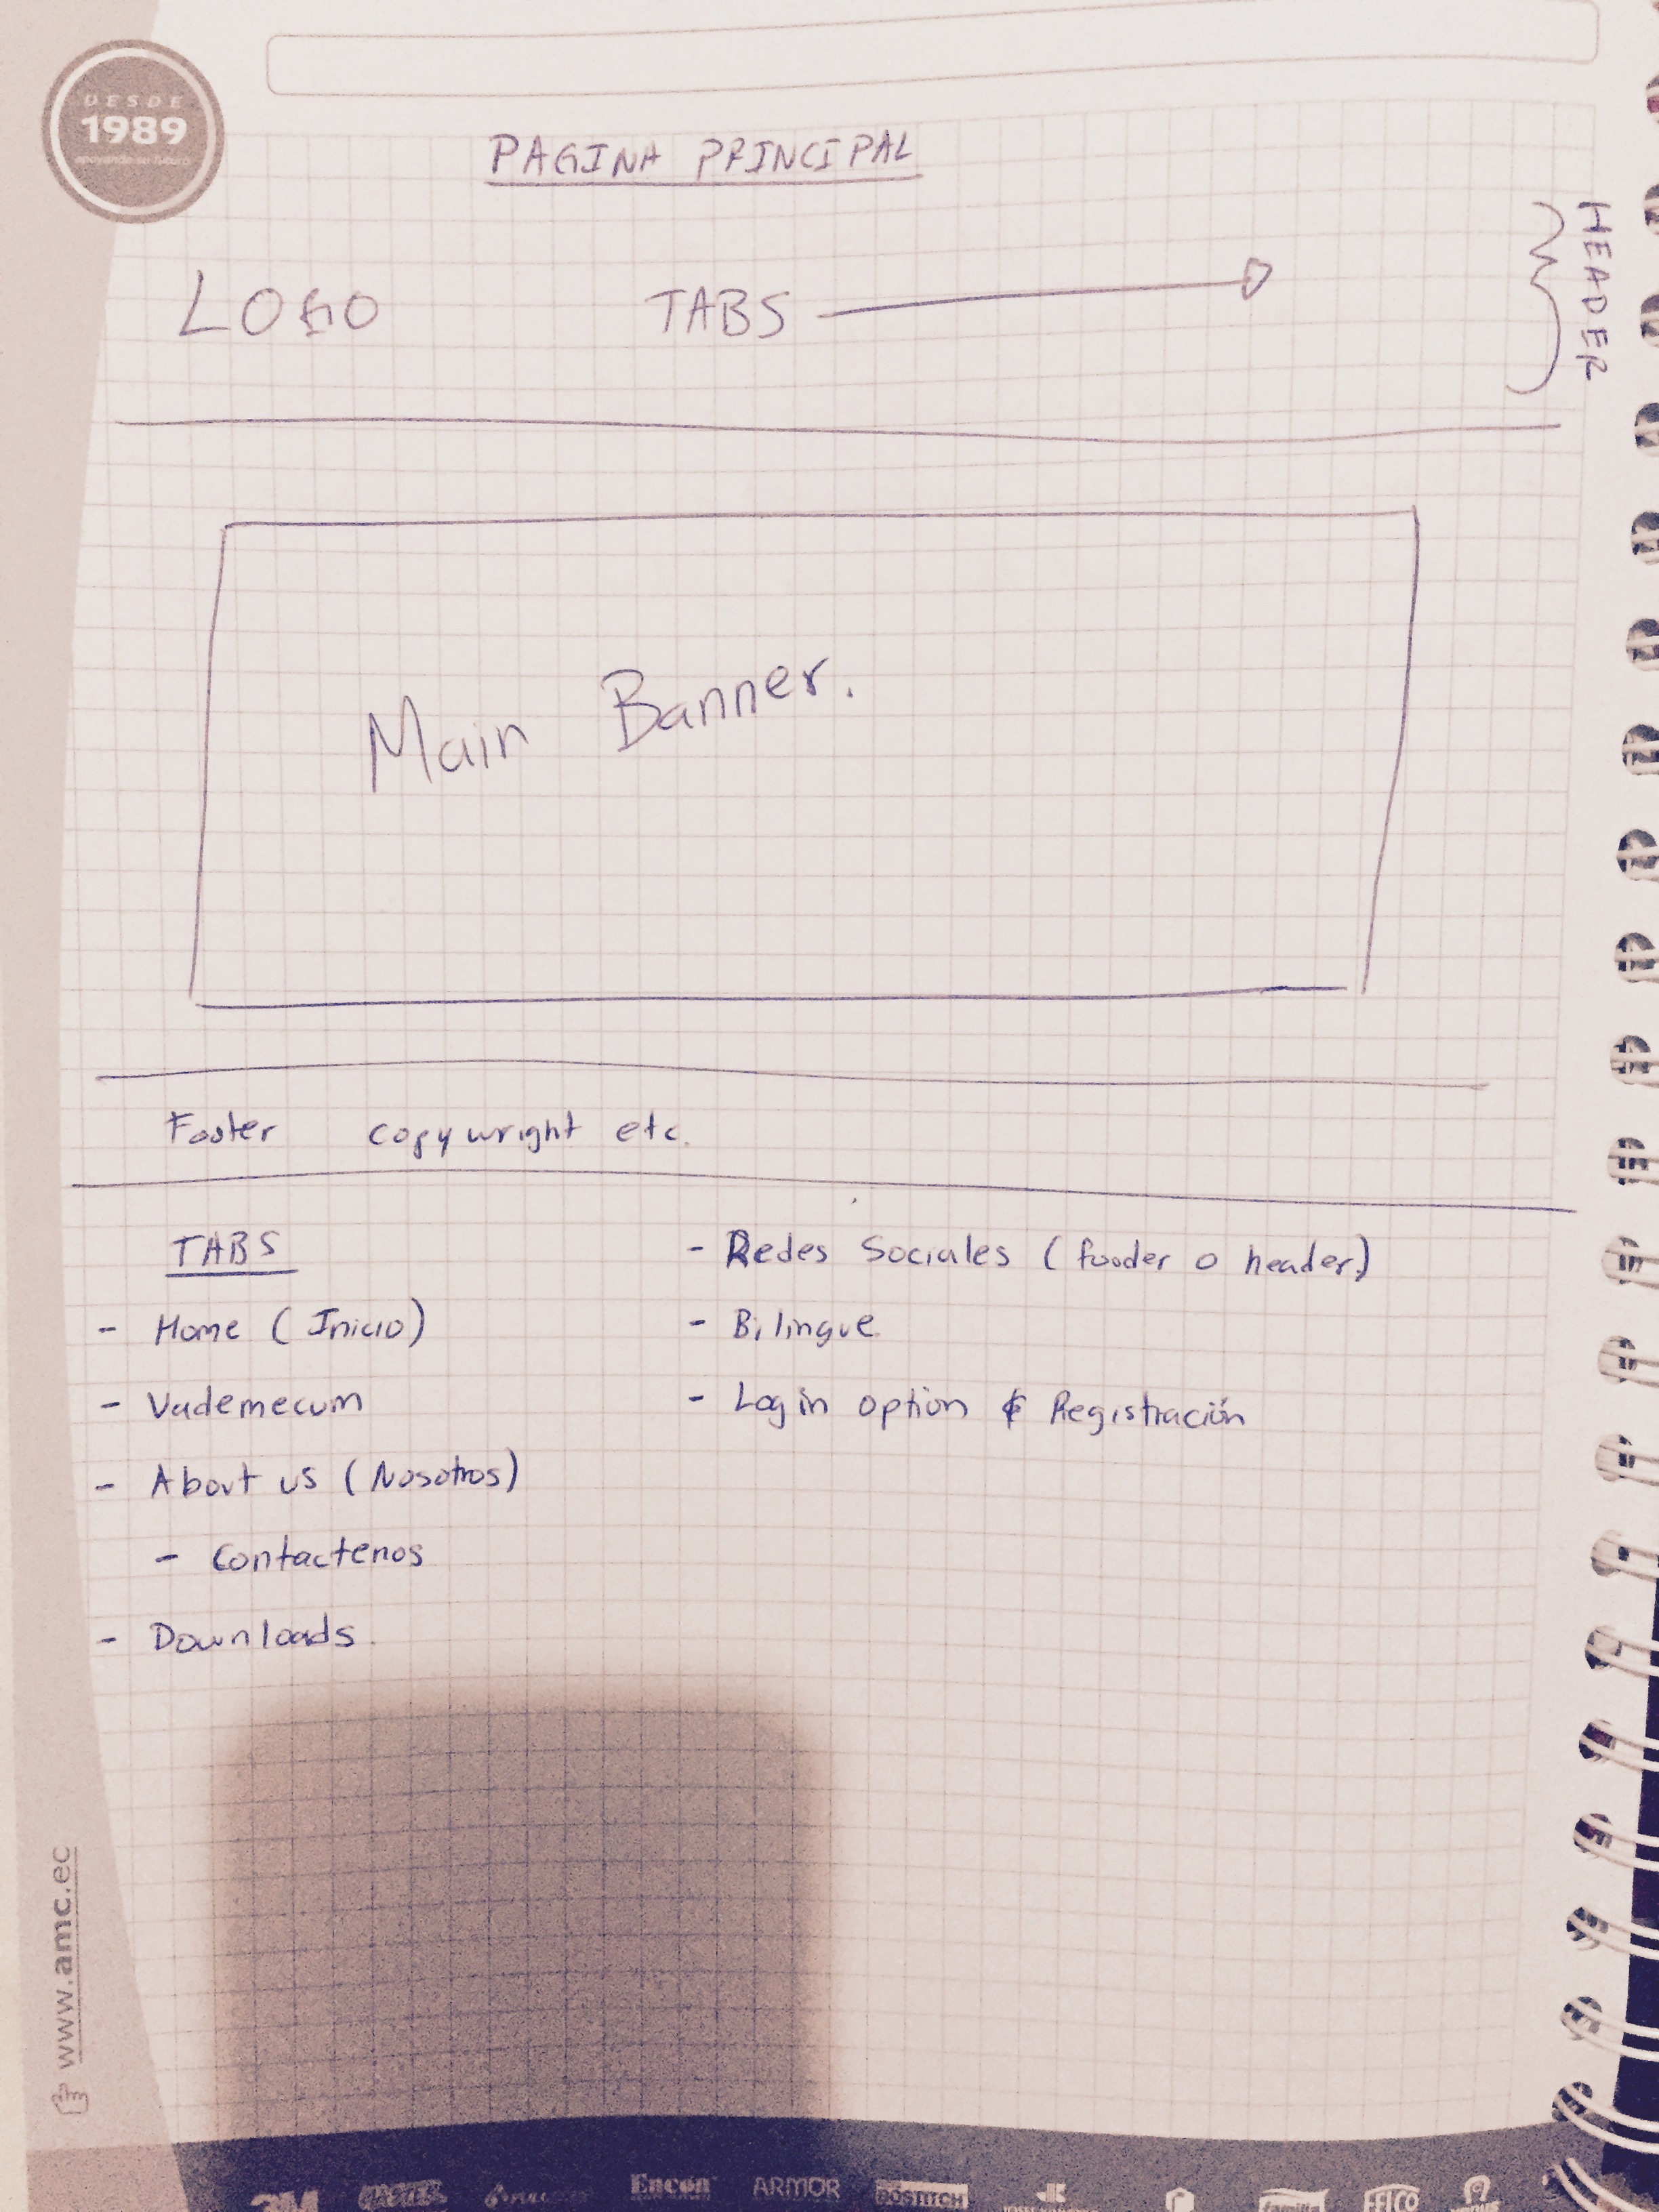 DESDE
1989
apoyando su futuro
PAGINA PRINCIPAL
HEADER
LOGO TABS
Main Banner.
Footer copywright etc.
TABS
- Home (Inicio)
- Vademecum
- About us (Nosotros)
- Contactenos
- Downloads.
- Redes Sociales (fooder o header)
- Bilingue
- Login option & Registración
www.amc.ec
3M
Encon
ARMOR
BOSTITCH
familia